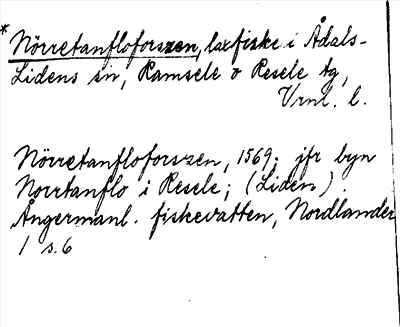 * Nörretanfloforszen, laxfiske i Ådals-
Lidens sn, Ramsele o Resele tg,
Vrnl. l.
Nörretanfloforszen, 1569; jfr byn
Norrtanflo i Resele; (Liden).
Ångermanl. fiskevatten, Nordlander
1 s. 6